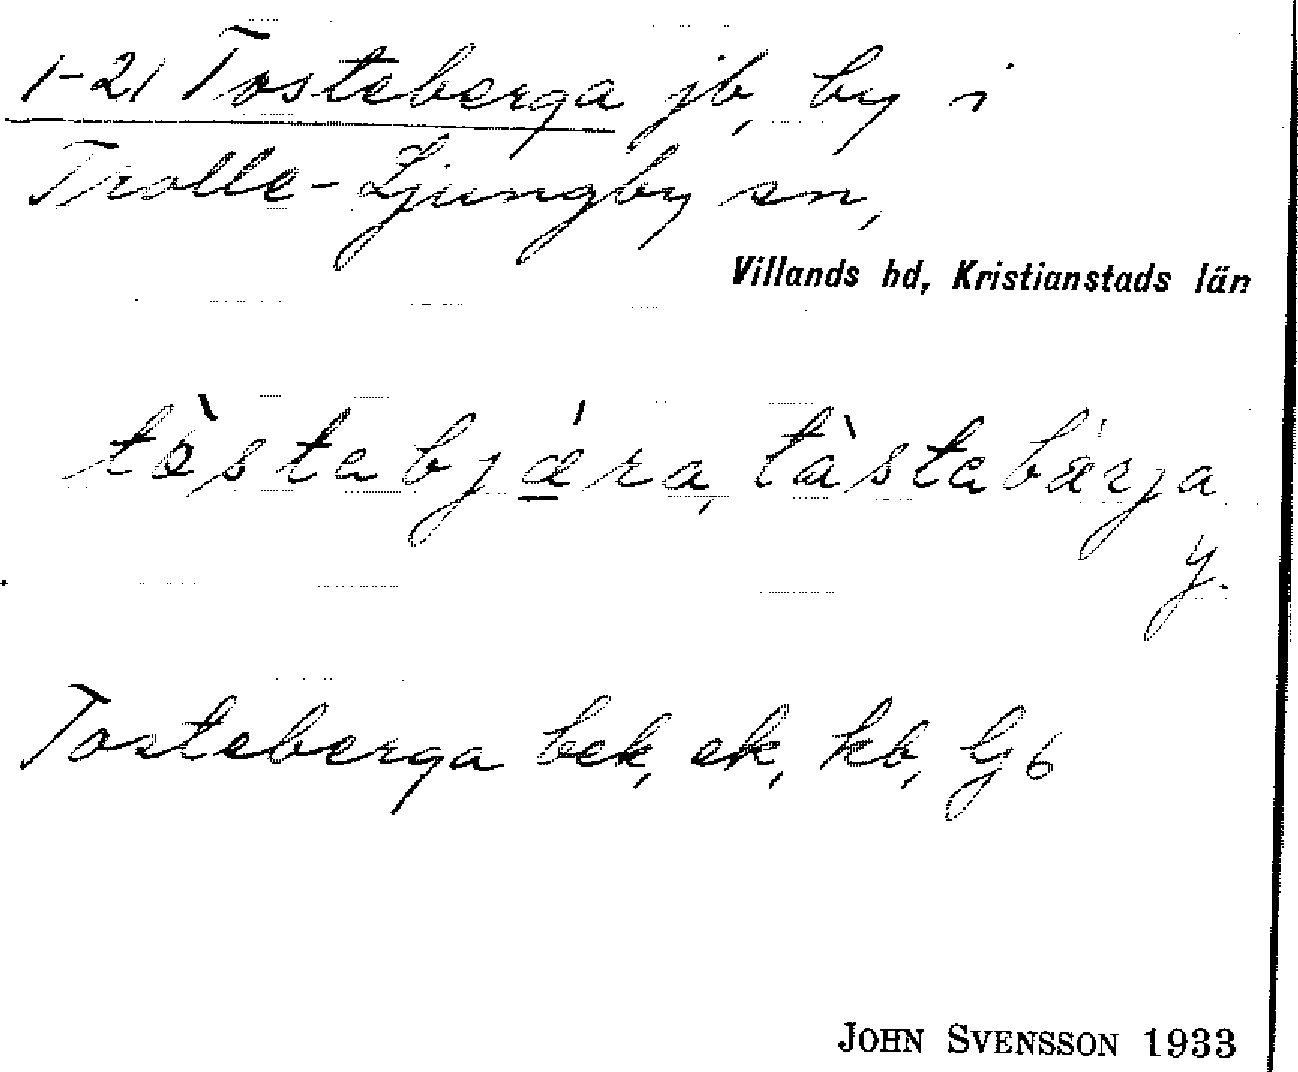 1-21 Tosteberga jb, by i
Trolle-Ljungby sn,
Villands hd, Kristianstads län
tòstabjǽ̱ra, tàstabǽrja
y.
Tosteberga bek, ek, kb, Gb
JOHN SVENSSON 1933